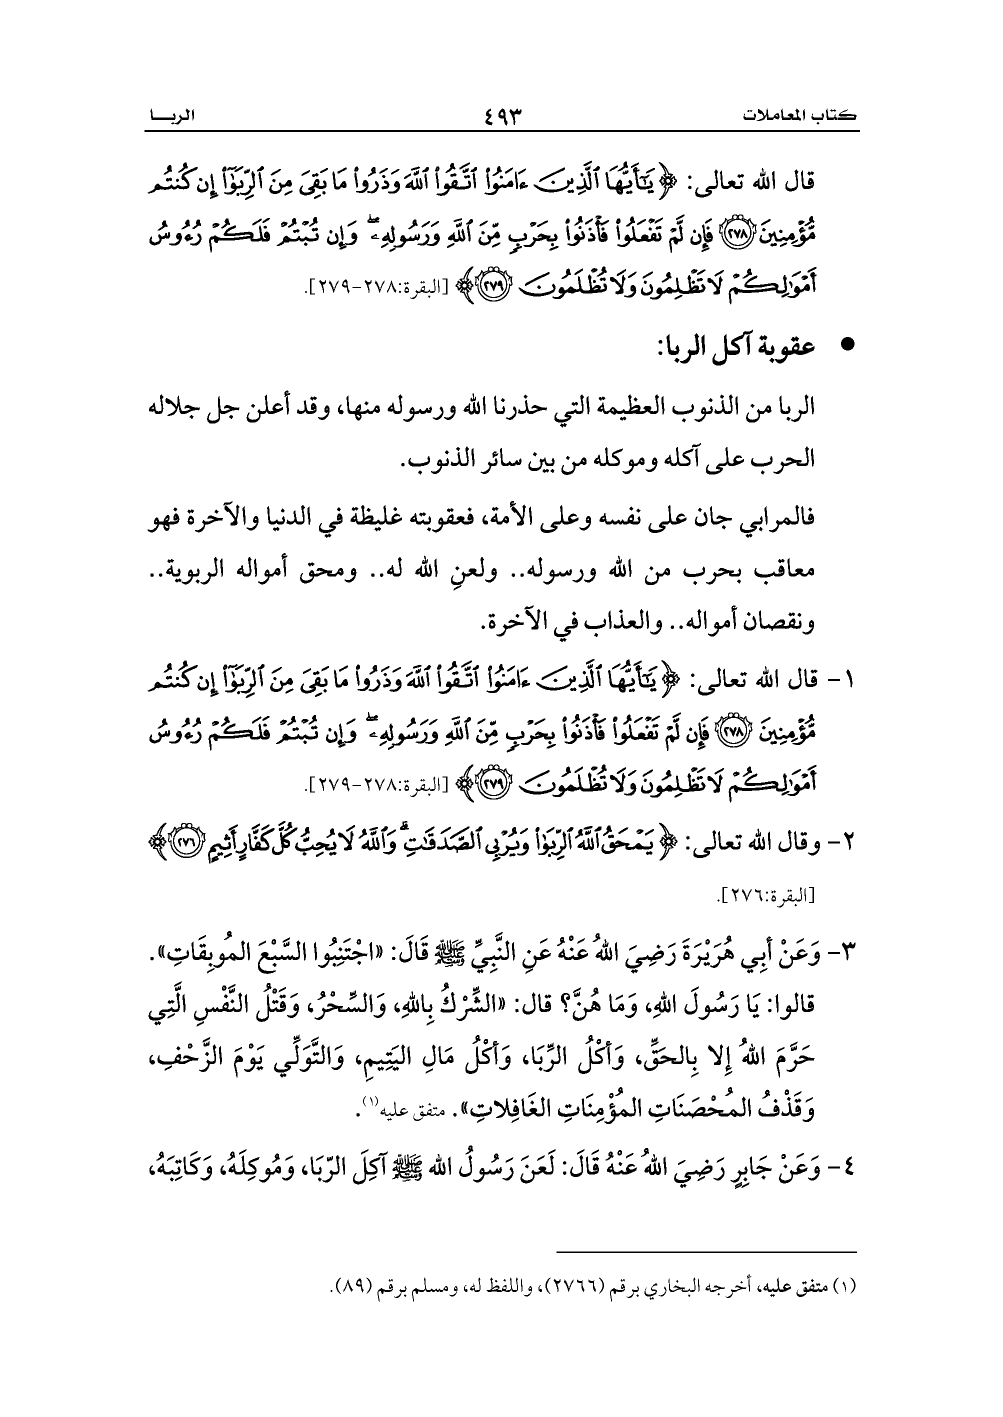 كتاب المعاملات ٤٩٣ الربـــا
قال الله تعالى: ﴿يَٰٓأَيُّهَا ٱلَّذِينَ ءَامَنُوا۟ ٱتَّقُوا۟ ٱللَّهَ وَذَرُوا۟ مَا بَقِىَ مِنَ ٱلرِّبَوٰٓا۟ إِن كُنتُم
مُّؤْمِنِينَ ٢٧٨ فَإِن لَّمْ تَفْعَلُوا۟ فَأْذَنُوا۟ بِحَرْبٍ مِّنَ ٱللَّهِ وَرَسُولِهِۦ ۖ وَإِن تُبْتُمْ فَلَكُمْ رُءُوسُ
أَمْوَٰلِكُمْ لَا تَظْلِمُونَ وَلَا تُظْلَمُونَ ٢٧٩﴾ [البقرة:٢٧٨-٢٧٩].
• عقوبة آكل الربا:
الربا من الذنوب العظيمة التي حذرنا الله ورسوله منها، وقد أعلن جل جلاله
الحرب على آكله وموكله من بين سائر الذنوب.
فالمرابي جان على نفسه وعلى الأمة، فعقوبته غليظة في الدنيا والآخرة فهو
معاقب بحرب من الله ورسوله.. ولعنِ الله له.. ومحق أمواله الربوية..
ونقصان أمواله.. والعذاب في الآخرة.
١- قال الله تعالى: ﴿يَٰٓأَيُّهَا ٱلَّذِينَ ءَامَنُوا۟ ٱتَّقُوا۟ ٱللَّهَ وَذَرُوا۟ مَا بَقِىَ مِنَ ٱلرِّبَوٰٓا۟ إِن كُنتُم
مُّؤْمِنِينَ ٢٧٨ فَإِن لَّمْ تَفْعَلُوا۟ فَأْذَنُوا۟ بِحَرْبٍ مِّنَ ٱللَّهِ وَرَسُولِهِۦ ۖ وَإِن تُبْتُمْ فَلَكُمْ رُءُوسُ
أَمْوَٰلِكُمْ لَا تَظْلِمُونَ وَلَا تُظْلَمُونَ ٢٧٩﴾ [البقرة:٢٧٨-٢٧٩].
٢- وقال الله تعالى: ﴿يَمْحَقُ ٱللَّهُ ٱلرِّبَوٰا۟ وَيُرْبِى ٱلصَّدَقَٰتِ ۗ وَٱللَّهُ لَا يُحِبُّ كُلَّ كَفَّارٍ أَثِيمٍ ٢٧٦﴾
[البقرة:٢٧٦].
٣- وَعَنْ أَبِي هُرَيْرَةَ رَضِيَ اللهُ عَنْهُ عَنِ النَّبِيِّ ﷺ قَالَ: «اجْتَنِبُوا السَّبْعَ المُوبِقَاتِ».
قالوا: يَا رَسُولَ اللهِ، وَمَا هُنَّ؟ قال: «الشِّرْكُ بِاللهِ، وَالسِّحْرُ، وَقَتْلُ النَّفْسِ الَّتِي
حَرَّمَ اللهُ إِلا بِالحَقِّ، وَأَكْلُ الرِّبَا، وَأَكْلُ مَالِ اليَتِيمِ، وَالتَّوَلِّي يَوْمَ الزَّحْفِ،
وَقَذْفُ المُحْصَنَاتِ المُؤْمِنَاتِ الغَافِلاتِ». متفق عليه(١).
٤- وَعَنْ جَابِرٍ رَضِيَ اللهُ عَنْهُ قَالَ: لَعَنَ رَسُولُ الله ﷺ آكِلَ الرِّبَا، وَمُوكِلَهُ، وَكَاتِبَهُ،
(١) متفق عليه، أخرجه البخاري برقم (٢٧٦٦)، واللفظ له، ومسلم برقم (٨٩).